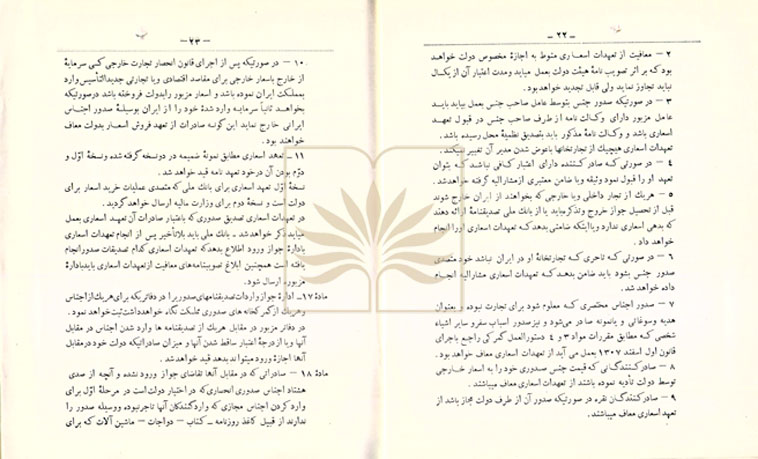 — ۲۲ —
۲ — معافیت از تعهدات اسعاری منوط به اجازهٔ مخصوص دولت خواهد
بود که بر اثر تصویب نامهٔ هیئت دولت بعمل میاید ومدت اعتبار آن ازیکسال
نباید تجاوز نماید ولی قابل تجدید خواهد بود.
۳ — در صورتیکه صدور جنس بتوسط عامل صاحب جنس بعمل بیاید باید
عامل مزبور دارای وکالت نامه از طرف صاحب جنس در قبول تعهد
اسعاری باشد و وکالت نامهٔ مذکور باید بتصدیق نظمیهٔ محل رسیده باشد.
تعهدات اسعاری هیچیک از تجارتخانها باعوض شدن مدیر آن تغییر نمیکند.
۴ — در صورتی که صادر کننده دارای اعتبار کافی نباشد که بتوان
تعهد او را قبول نمود وثیقه ویا ضامن معتبری ازمشارالیه گرفته خواهدشد.
۵ — هریک از تجار داخلی ویا خارجی که بخواهند از ایران خارج شوند
قبل از تحصیل جواز خروج وتذکره باید یا از بانک ملی تصدیقنامهٔ ارائه دهند
که بدهی اسعاری ندارد ویا اینکه ضامنی بدهد که تعهدات اسعاری اورا انجام
خواهد داد.
۶ — در صورتی که تاجری که تجارتخانهٔ او در ایران نباشد خود متصدی
صدور جنس بشود باید ضامن بدهد که تعهدات اسعاری مشارالیه انجام
داده خواهد شد.
۷ — صدور اجناس مختصری که معلوم شود برای تجارت نبوده و بعنوان
هدیه وسوغاتی و یانمونه صادر می‌شود و نیز صدور اسباب سفرو سایر اشیاء
شخصی که مطابق مقررات مواد ۳ و ۴ دستورالعمل گمرکی راجع باجرای
قانون اول اسفند ۱۳۰۷ بعمل می آید از تعهدات اسعاری معاف خواهد بود.
۸ — صادرکنندگانی که قیمت جنس صدوری خود را به اسعار خارجی
توسط دولت تأدیه نموده باشند از تعهدات اسعاری معاف میباشند.
۹ — صادرکنندگان نقره در صورتیکه صدور آن از طرف دولت مجاز باشد از
تعهد اسعاری معاف میباشند.
— ۲۳ —
۱۰ — در صورتیکه پس از اجرای قانون انحصار تجارت خارجی کسی سرمایهٔ
از خارج باسعار خارجی برای مقاصد اقتصادی ویا تجارتی جدیدالتأسیس وارد
بمملکت ایران نموده باشد و اسعار مزبور رابدولت فروخته باشد درصورتیکه
بخواهد ثانیاً سرمایه وارد شدهٔ خود را از ایران بوسیلهٔ صدور اجناس
ایرانی خارج نماید این گونه صادرات از تعهد فروش اسعار بدولت معاف
خواهند بود.
۱۱ — تعهد اسعاری مطابق نمونهٔ ضمیمه در دونسخه گرفته شده ونسخهٔ اوّل و
دوّم بودن آن درخود تعهد نامه قید خواهد شد.
نسخهٔ اوّل تعهد اسعاری برای بانک ملی که متصدی عملیات خرید اسعار برای
دولت است و نسخهٔ دوم برای وزارت مالیه ارسال خواهد گردید.
در تعهدات اسعاری تصدیق صدوری که باعتبار صادرات آن تعهد اسعاری بعمل
میاید ذکر خواهد شد — بانک ملی باید بلاتأخیر پس از انجام تعهدات اسعاری
بادارهٔ جواز ورود اطلاع بدهد که تعهدات اسعاری کدام تصدیقات صدورانجام
یافته است همچنین ابلاغ تصویبنامه‌های معافیت ازتعهدات اسعاری باید بادارهٔ
مزبوره ارسال شود.
مادهٔ ۱۷ — ادارهٔ جواز واردات تصدیقنامهای صدوررا در دفاتریکه برای هریک ازاجناس
وهریک از گمرکخانه های صدوری مملکت نگاه خواهد داشت ثبت خواهد نمود.
در دفاتر مزبور در مقابل هریک از تصدیقنامه ها وارد شدن اجناس در مقابل
آنها ویا از درجهٔ اعتبار ساقط شدن آنها و میزان صادراتیکه دولت خود درمقابل
آنها اجازهٔ ورود میتواند بدهد قید خواهد شد.
مادهٔ ۱۸ — صادراتی که در مقابل آنها تقاضای جواز ورود نشده و آنچه از صدی
هشتاد اجناس صدوری انحصاری که در اختیار دولت است در مرحلهٔ اوّل برای
وارد کردن اجناس مجازی که واردکنندگان آنها تاجرنبوده ووسیله صدور را
ندارند از قبیل کاغذ روزنامه — کتاب — دواجات — ماشین آلات که برای